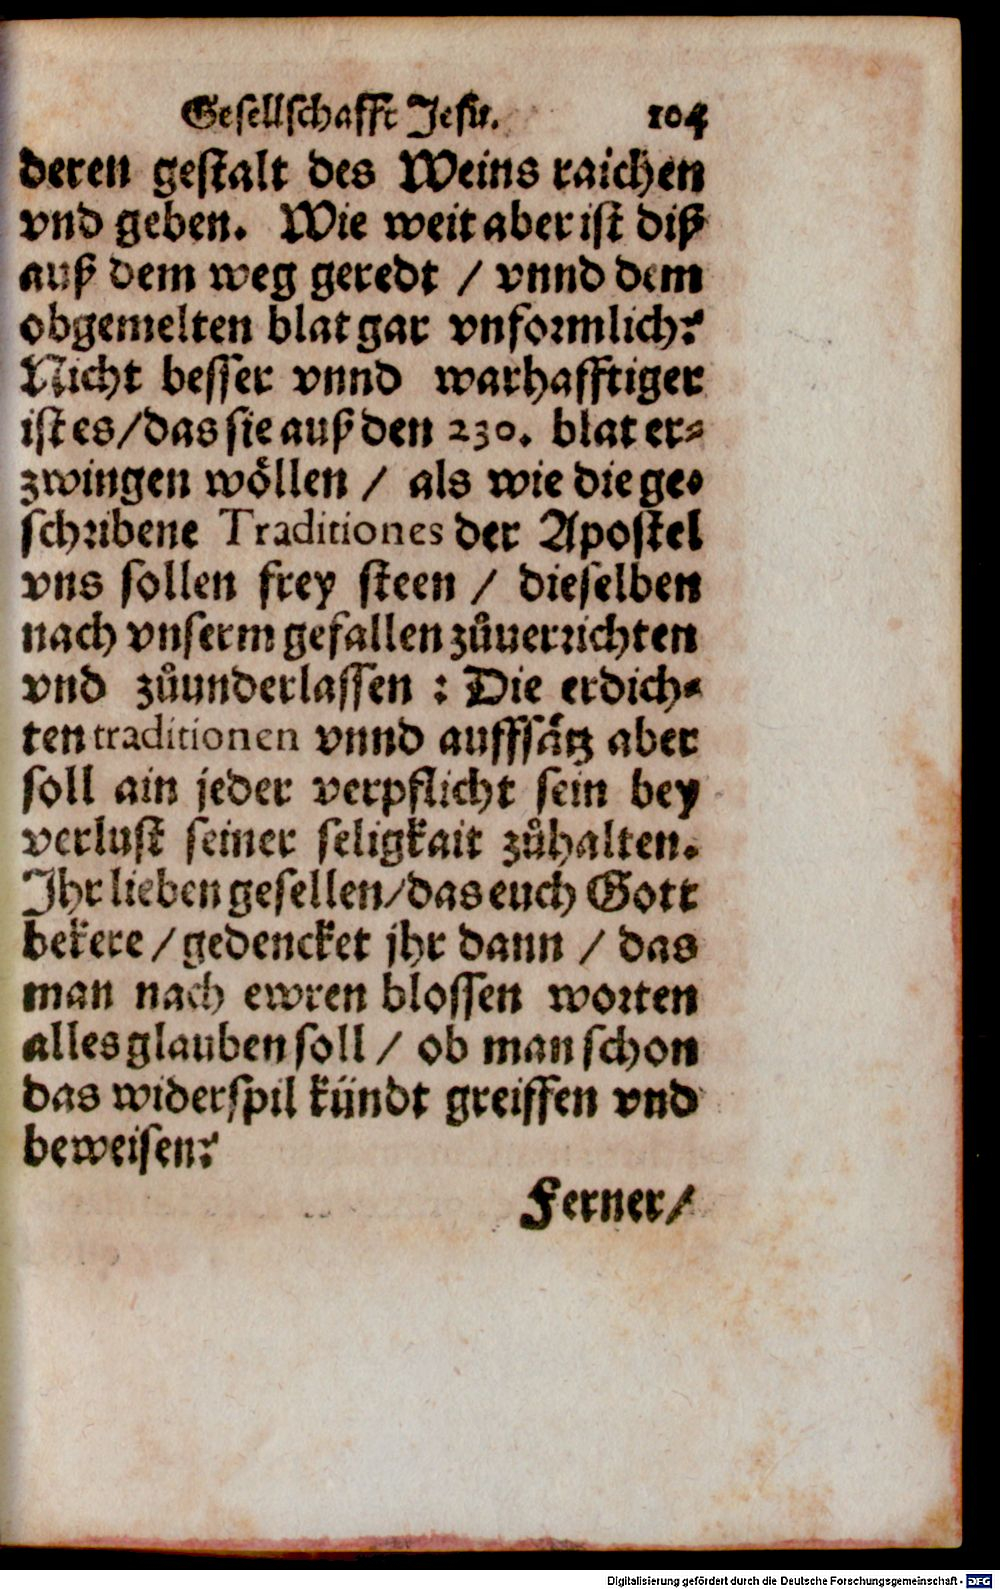 Gesellschafft Jesu. 104
deren gestalt des Weins raichen
vnd geben. Wie weit aber ist diß
auß dem weg geredt / vnnd dem
obgemelten blat gar vnformlich?
Nicht besser vnnd warhafftiger
ist es / das sie auß den 230. blat er-
zwingen wöllen / als wie die ge-
schribene Traditiones der Apostel
vns sollen frey steen / dieselben
nach vnserm gefallen zůuerrichten
vnd zůunderlassen : Die erdich-
ten traditionen vnnd auffsätz aber
soll ain jeder verpflicht sein bey
verlust seiner seligkait zůhalten.
Ihr lieben gesellen / das euch Gott
bekere / gedencket jhr dann / das
man nach ewren blossen worten
alles glauben soll / ob man schon
das widerspil kündt greiffen vnd
beweisen?
Ferner /
Digitalisierung gefördert durch die Deutsche Forschungsgemeinschaft - DFG